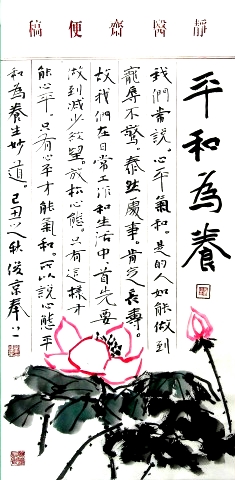 靜醫齋便稿
平和為養
我們常說。心平氣和。是的人如能做到
寵辱不驚。泰然處事。肯定長壽。
故我們在日常工作和生活中首先要
做到減少欲望。放松心態。只有這樣才
能心平。只有心平才能氣和。所以說心態平
和為養生妙道。己丑之秋